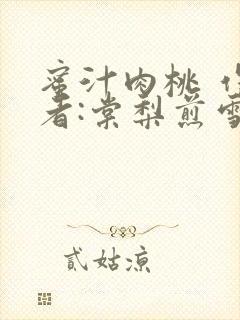 蜜汁肉桃 作
者:棠梨煎雪
貳姑凉